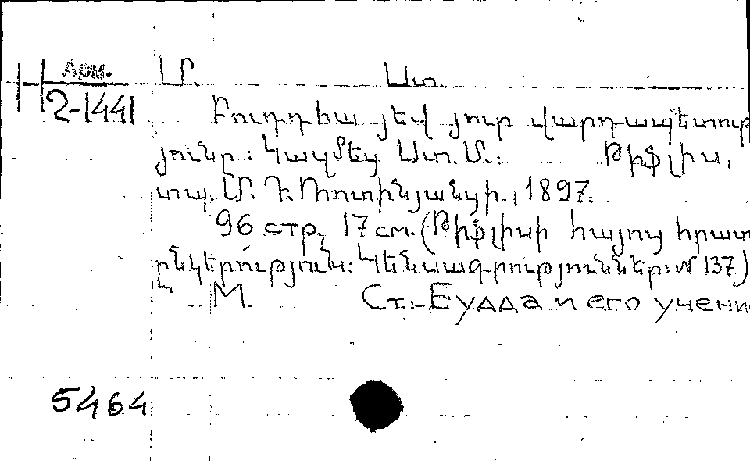 Арм.
2-1441
Ա. Մ. Ստ.
Բուդդհա յեվ յուր վարդապետութ
յունը: Կազմեց Ստ. Մ.: Թիֆլիս,
տպ. Մ. Դ. Ռոտինյանցի, 1897.
96 стр, 17 см. (Թիֆլիսի հայոց հրատ
ընկերություն: Կենսագրություններ: № 137)
М. Ст. - Будда и его учени
5464